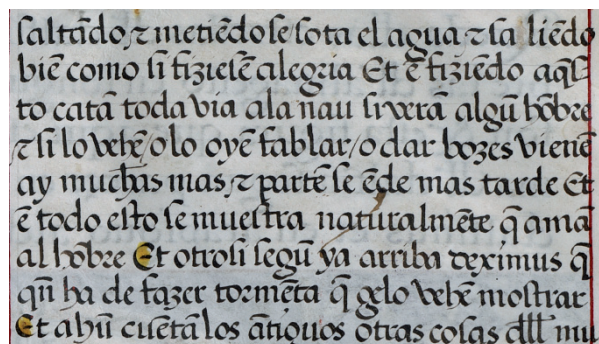 saltãdo ⁊ metiẽdo se sota el agua ⁊ sa liẽdo
biẽ como si fiziesẽ alegria Et ẽ fiziẽdo aq̃s
to catã toda via ala nau si verã algũ hõbre
⁊ si lo vehẽ / o lo oyẽ fablar / o dar bozes vienẽ
ay muchas mas ⁊ partẽ se ẽde mas tarde Et
ẽ todo esto se muestra naturalmẽte q̃ amã
al hõbre Et otrosi segũ ya arriba deximus q̃
qñ ha de fazer tormẽta q̃ gelo vehẽ mostrar
Et ahũ cuẽtã los ãtiguos otras cosas dll mu